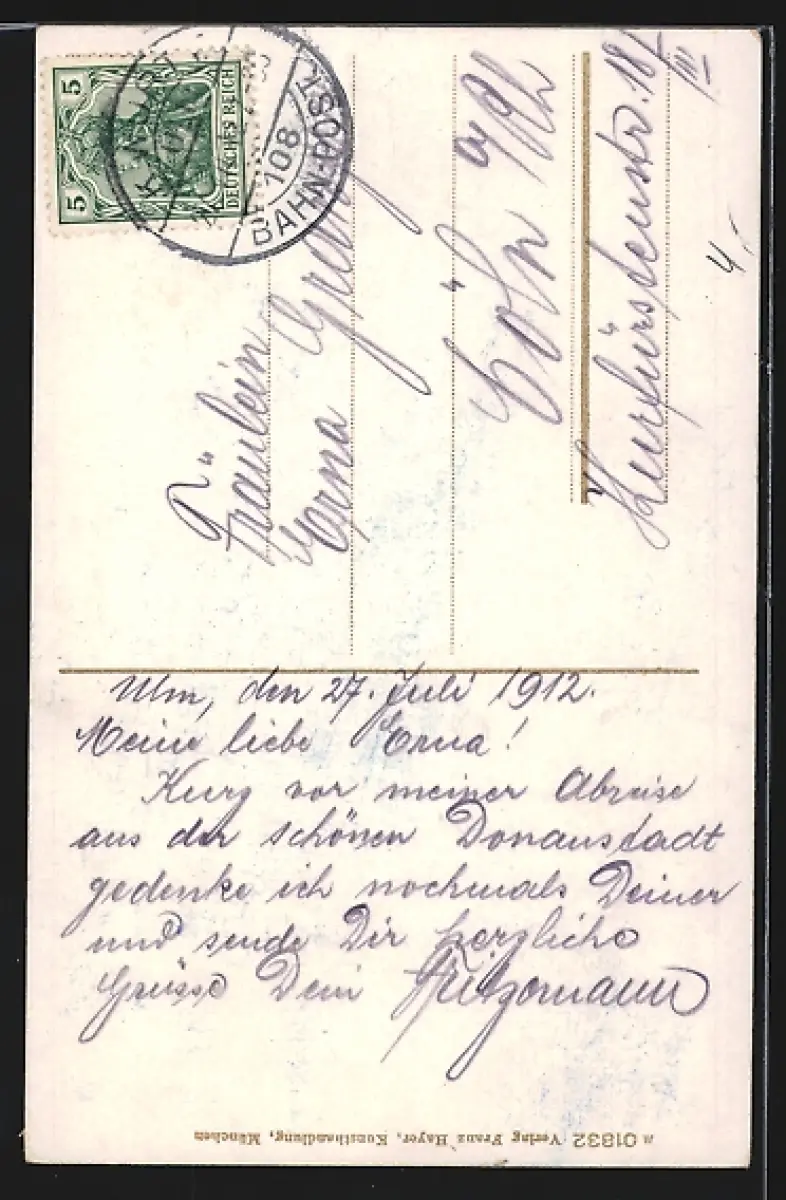 5
5
DEUTSCHES REICH
BAHN-POST
108
Fräulein
Erna
Cöln a/Rh
Kurfürstenstr. 18/III
4.-
Ulm, den 27. Juli 1912.
Meine liebe Erna!
Kurz vor meiner Abreise
aus der schönen Donaustadt
gedenke ich nochmals Deiner
und sende Dir herzliche
Grüsse Dein
n 01832 Verlag Franz Hayer, Kunsthandlung, München